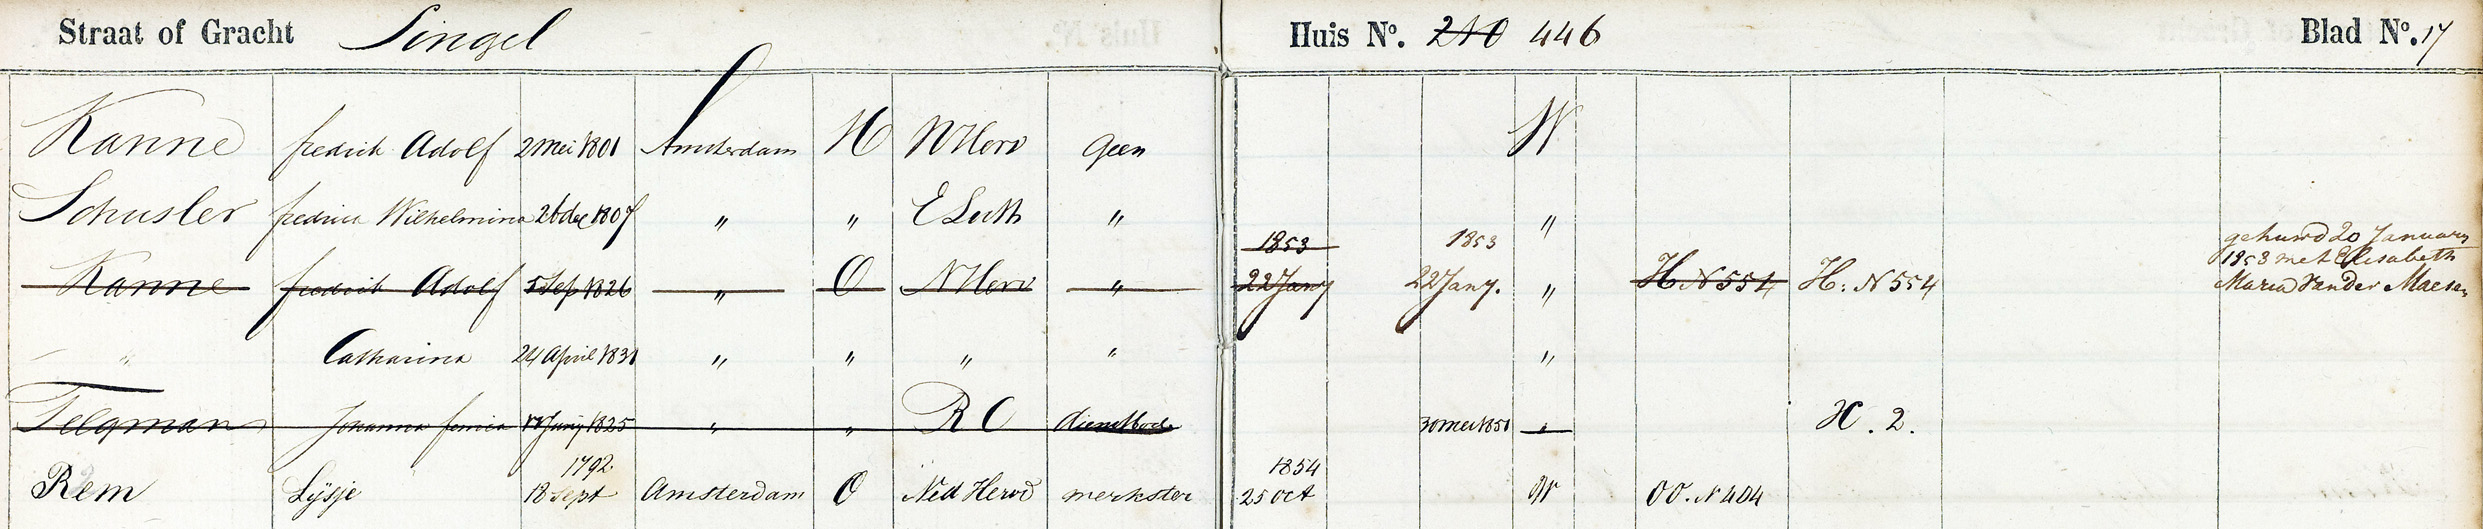 Straat of Gracht Singel Huis No. 210 446 Blad No. 17
Kanne fredrik Adolf 2 Mei 1801 Amsterdam H N Herv geen W
Schusler fredrica Wilhelmina 26 dec 1807 " " E Luth " "
1853 1853 gehuwd 20 January
Kanne fredrik Adolf 5 Sep 1826 " O N Herv " 22 Jany 22 Jany. " H N 554 H. N 554 1853 met Elisabeth
Maria Van der Maesen
" Catharina 24 April 1831 " " " " "
Telgman Johanna femia Juny 1825 " " R C dienstbode 30 mei 1851 " H. 2.
1792. 1854
Rem Lijsje 18 Sept Amsterdam O Ned Hervd werkster 25 Oct W OO. N 404